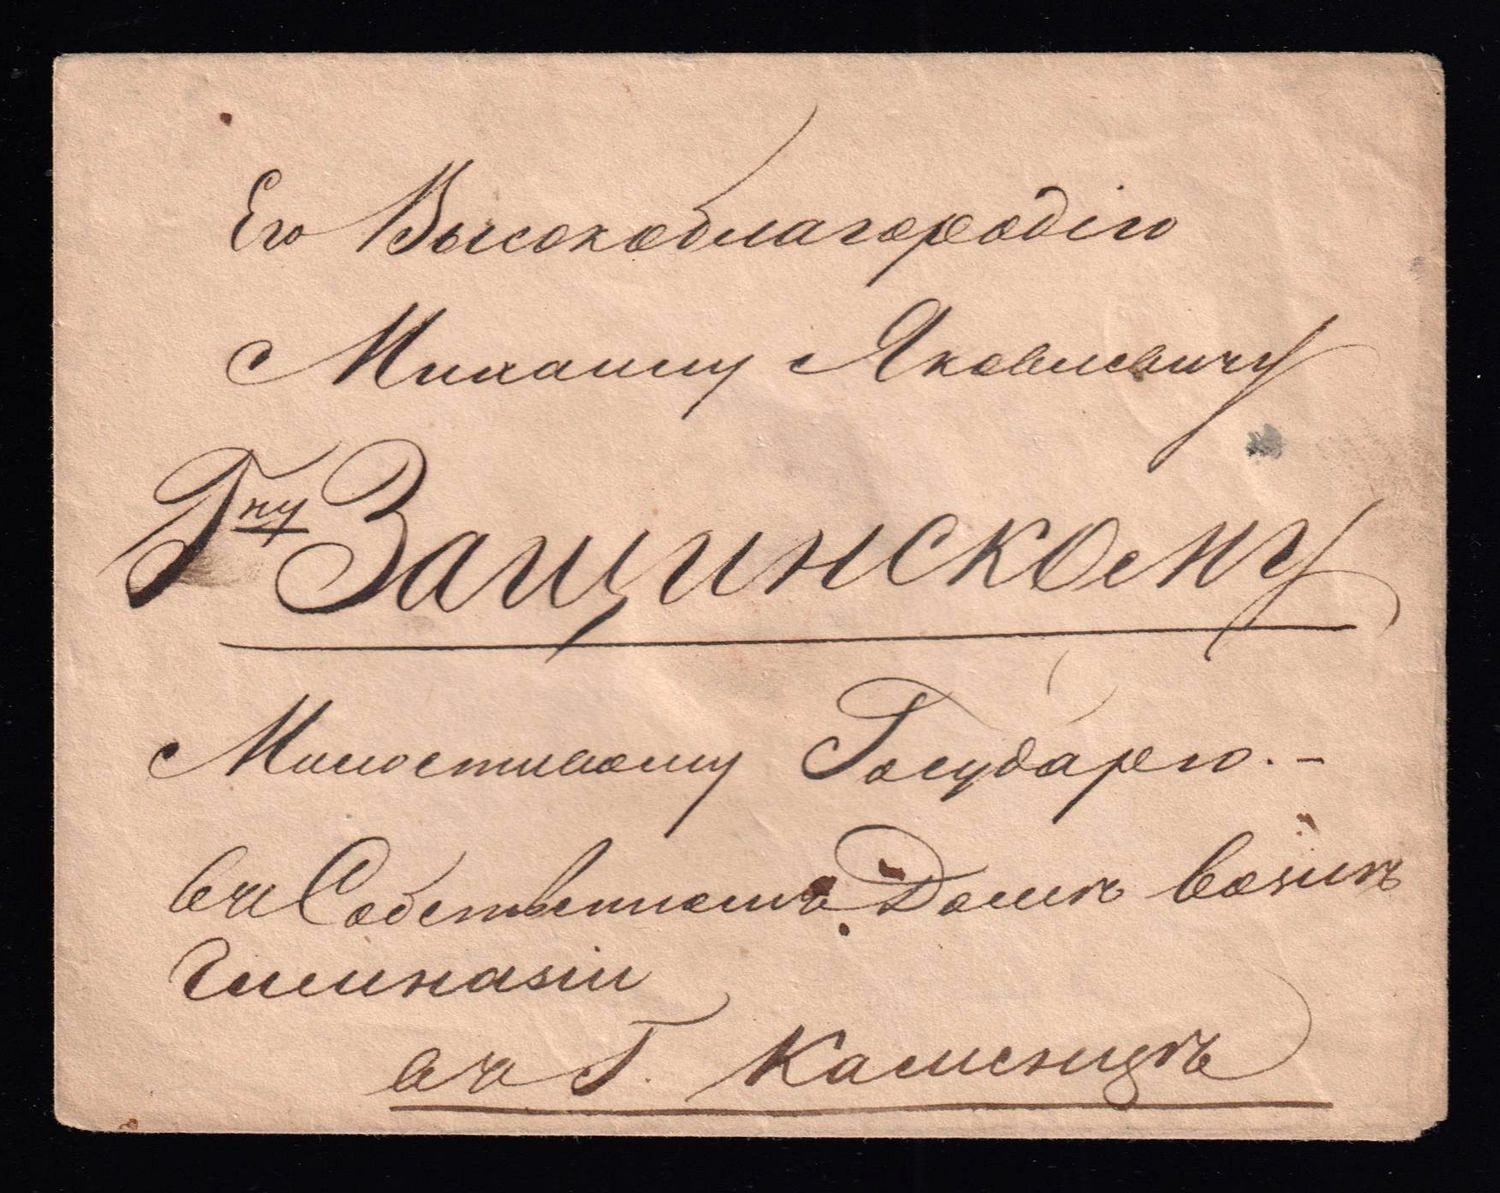 Его Высокоблагородію
Михаилу Яковлевичу
Гну Защинскому
Милостивому Государю. –
въ Собственномъ Домѣ возлѣ
Гимназіи
въ Г. Каменцѣ